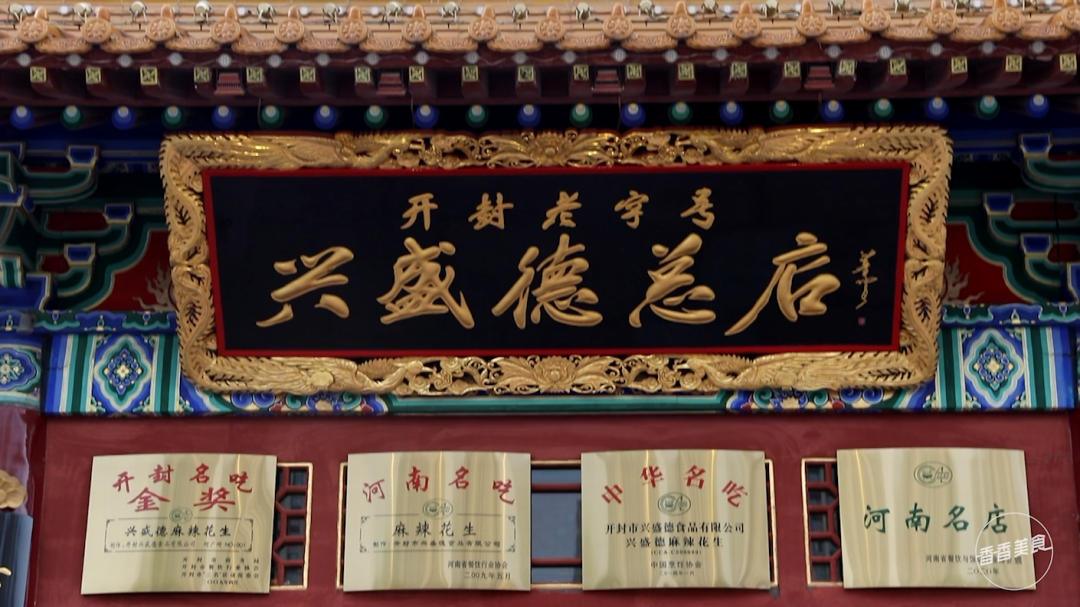 开封老字号
兴盛德总店
开封名吃
金奖
兴盛德麻辣花生
河南名吃
麻辣花生
制作:开封市兴盛德食品有限公司
河南省餐饮行业协会
二00九年五月
中华名吃
开封市兴盛德食品有限公司
兴盛德麻辣花生
中国烹饪协会
河南名店
香香美食